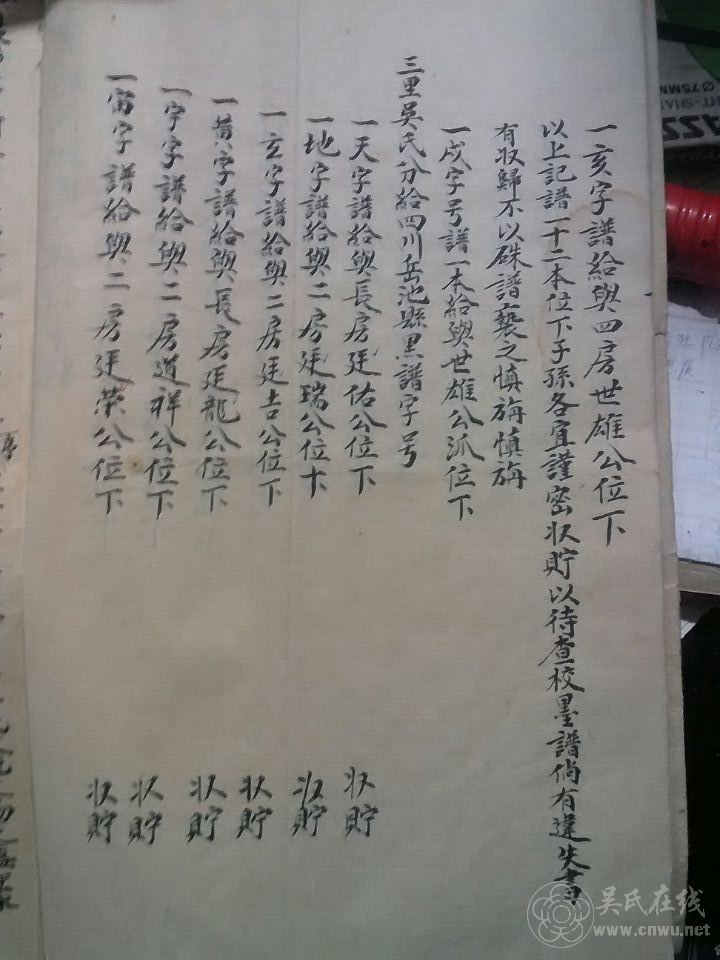 一亥字譜給與四房世雄公位下
以上記譜一十二本位下子孫各宜謹密収貯以待查校墨譜倘有違失書
有収歸不以硃譜褻之慎旃慎旃
一戍字号譜一本給與世雄公派位下
三里吳氏分給四川岳池縣黑譜字号
一天字譜給與長房廷佑公位下 収貯
一地字譜給與二房廷瑞公位下 収貯
一玄字譜給與二房廷吉公位下 収貯
一黄字譜給與長房廷龍公位下 収貯
一宇字譜給與二房道祥公位下 収貯
一宙字譜給與二房廷榮公位下 収貯
吴氏在线
www.cnwu.net